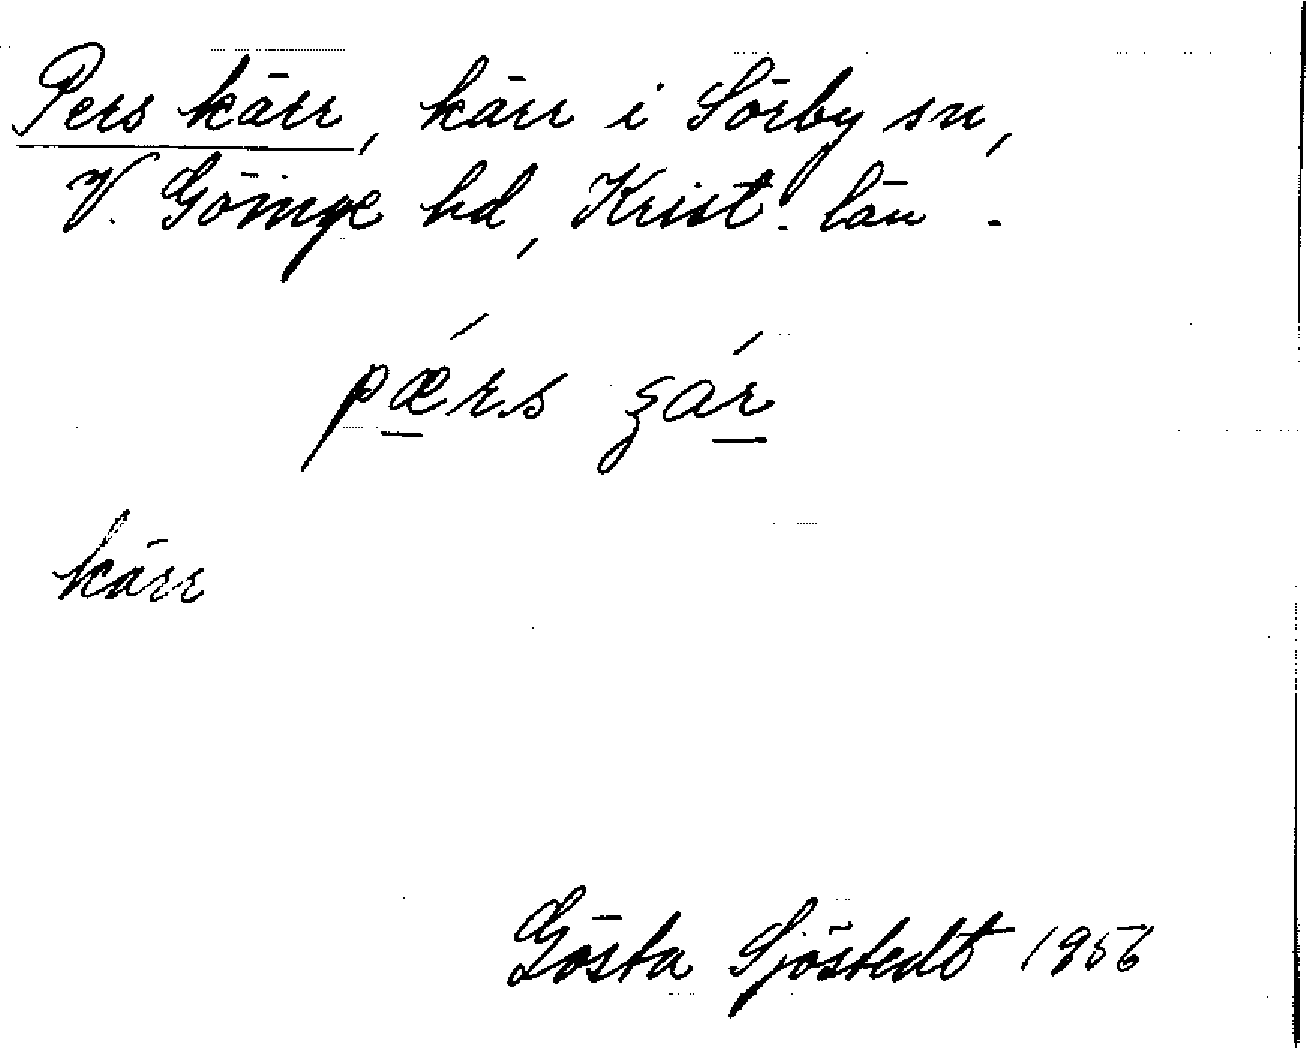 Pers kärr, kärr i Sörby sn,
V. Göinge hd, Krist. län.
pǽrs ʂár
kärr
Gösta Sjöstedt 1956